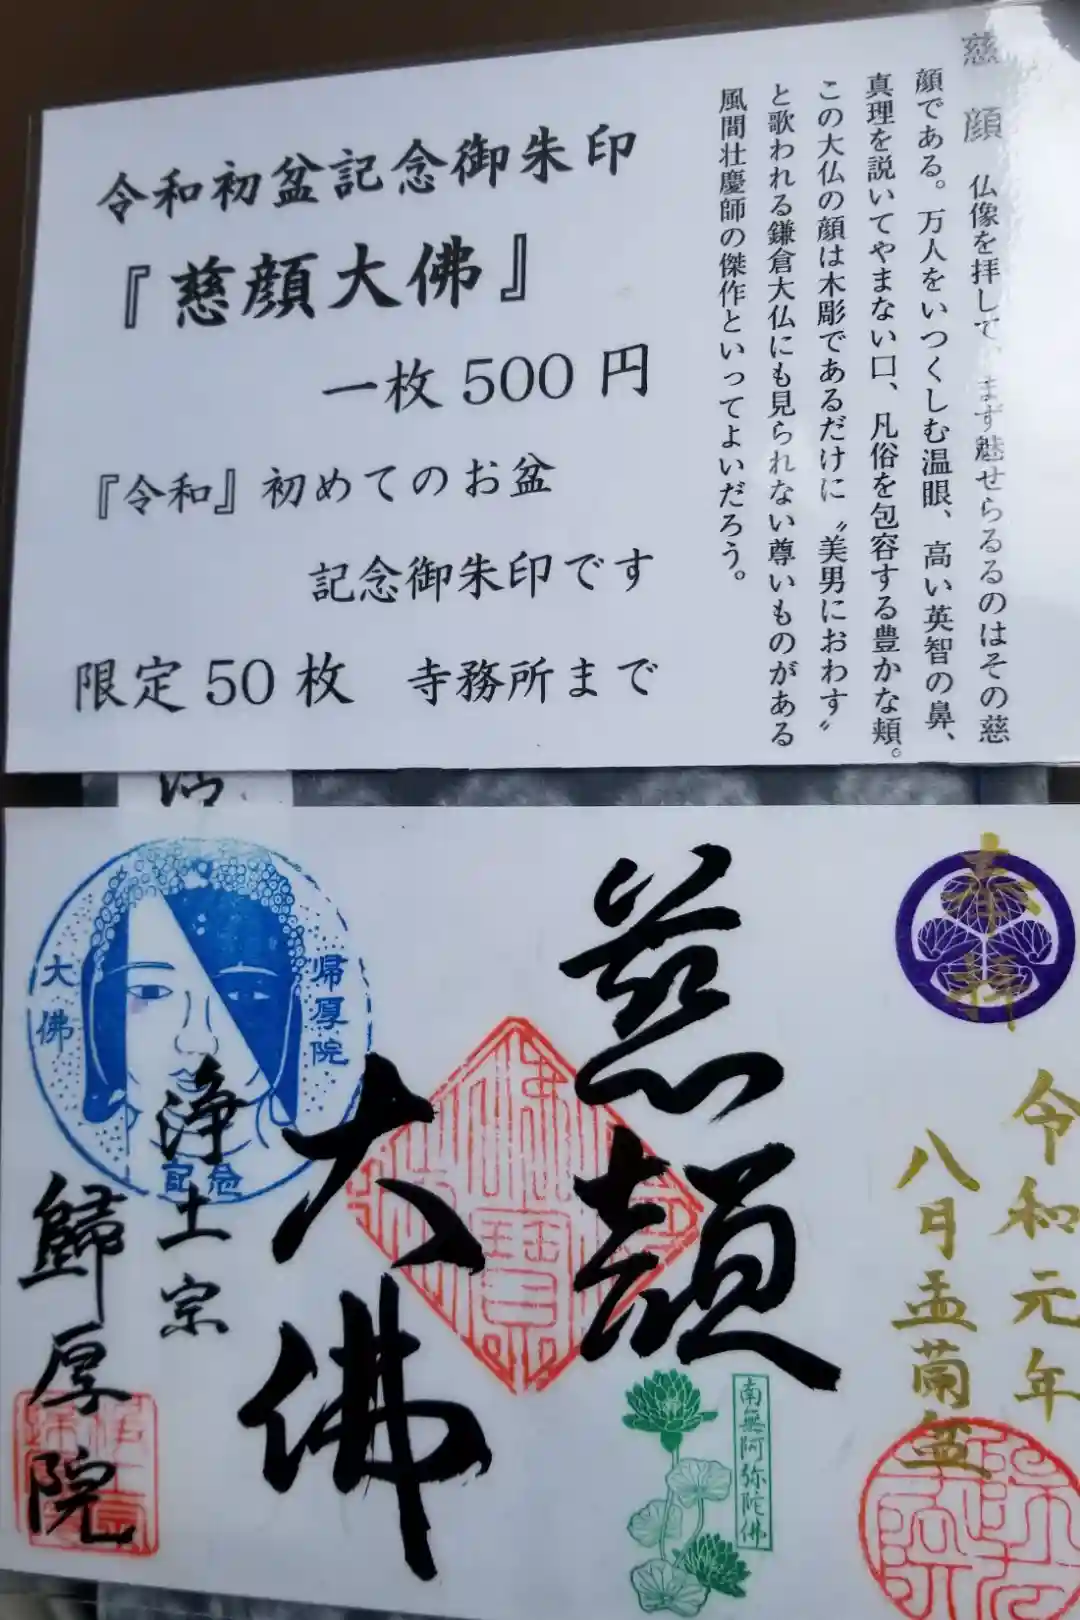 令和初盆記念御朱印
『慈顔大佛』
一枚500円
『令和』初めてのお盆
記念御朱印です
限定50枚 寺務所まで
慈顔 仏像を拝して、まず魅せらるるのはその慈
顔である。万人をいつくしむ温眼、高い英智の鼻、
真理を説いてやまない口、凡俗を包容する豊かな頬。
この大仏の顔は木彫であるだけに〝美男におわす〟
と歌われる鎌倉大仏にも見られない尊いものがある
風間壮慶師の傑作といってよいだろう。
奉拝
令和元年
八月盂蘭盆
慈顔
大佛
南無阿弥陀佛
帰厚院
大佛
記念
浄土宗
歸厚院